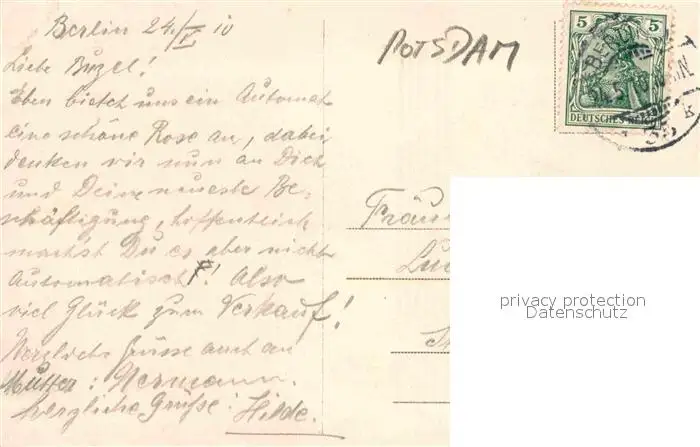 Berlin 24./V. 10
POTSDAM
Liebe Buzel!
Eben bietet uns ein Automat
eine schöne Rose an, dabei
denken wir nun an Dich
und Deine neueste Be-
schäftigung, hoffentlich
machst Du es aber nicht
Automatisch! Also
viel Glück zum Verkauf!
Herzliche Grüsse auch an
Mutter: Hermann.
herzliche Grüße: Hilde.
5 5
DEUTSCHES REICH
BERLIN
Fräu
Lu
privacy protection
Datenschutz